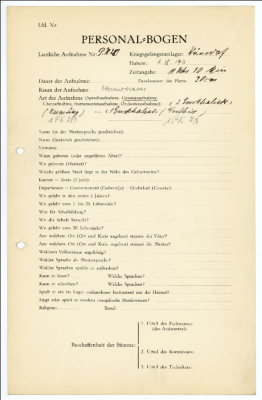 Lfd. Nr
PERSONAL-BOGEN
Lautliche Aufnahme Nr.:
Kriegsgefangenenlager:
Datum:
Zeitangabe: 11 Uhr 10 Min
Dauer der Aufnahme:
Durchmesser der Platte:
Raum der Aufnahme:
Art der Aufnahme (Sprechaufnahme, Gesangsaufnahme,
Choraufnahme, Instrumentenaufnahme, Orchesteraufnahme):
Name (in der Muttersprache geschrieben):
Name (lateinisch geschrieben):
Vorname:
Wann geboren (oder ungefähres Alter)?
Wo geboren (Heimat)?
Welche größere Stadt liegt in der Nähe des Geburtsortes?
Kanton — Kreis (Ujedz):
Departement — Gouvernement (Gubernija) — Grafschaft (County):
Wo gelebt in den ersten 6 Jahren?
Wo gelebt vom 7. bis 20. Lebensjahr?
Was für Schulbildung?
Wo die Schule besucht?
Wo gelebt vom 20. Lebensjahr?
Aus welchem Ort (Ort und Kreis angeben) stammt der Vater?
Aus welchem Ort (Ort und Kreis angeben) stammt die Mutter?
Welchem Volksstamm angehörig?
Welche Sprache als Muttersprache?
Welche Sprachen spricht er außerdem?
Kann er lesen? Welche Sprachen?
Kann er schreiben? Welche Sprachen?
Spielt er ein im Lager vorhandenes Instrument aus der Heimat?
Singt oder spielt er modern europäische Musikweisen?
Religion: Beruf:
Beschaffenheit der Stimme:
1. Urteil des Fachmannes
(des Assistenten):
2. Urteil des Kommissars:
3. Urteil des Technikers: